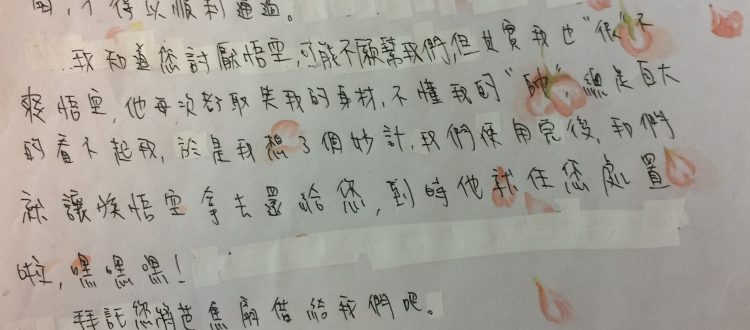 困，才得以順利通過。
我知道您討厭悟空，可能不願幫我們，但其實我也"很"不
爽悟空，他每次都取笑我的身材，不懂我的"帥"，總是自大
的看不起我，於是我想了個妙計，我們使用完後，我們
就讓猴悟空拿去還給您，到時他就任您處置
啦，嘿嘿嘿！
拜託您將芭蕉扇借給我們吧。